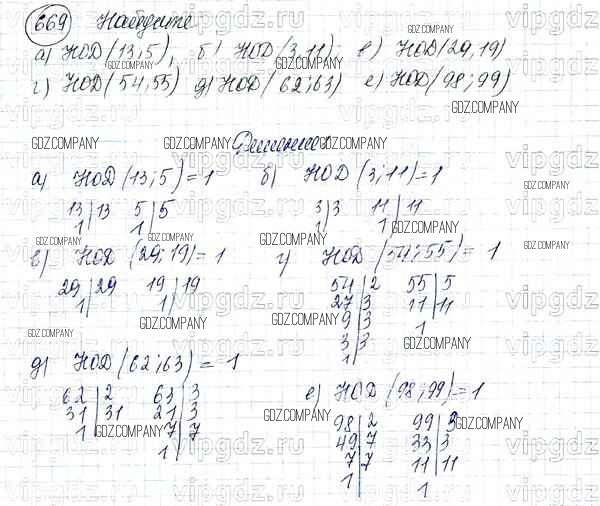 669 Найдите
а) НОД(13,5), б) НОД(3,11); в) НОД(29,19)
г) НОД(54,55) д) НОД(62;63) е) НОД(98;99)
Решение
а) НОД(13;5)=1 б) НОД(3;11)=1
13|13 5|5 3|3 11|11
1| 1| 1| 1|
в) НОД(29;19)=1 г) НОД(54;55)=1
29|29 19|19 54|2 55|5
1| 1| 27|3 11|11
9|3 1
3|3
1|
д) НОД(62;63)=1 е) НОД(98;99)=1
62|2 63|3 98|2 99|3
31|31 21|3 49|7 33|3
1| 7|7 7|7 11|11
1| 1 1
GDZ.COMPANY
vipgdz.ru